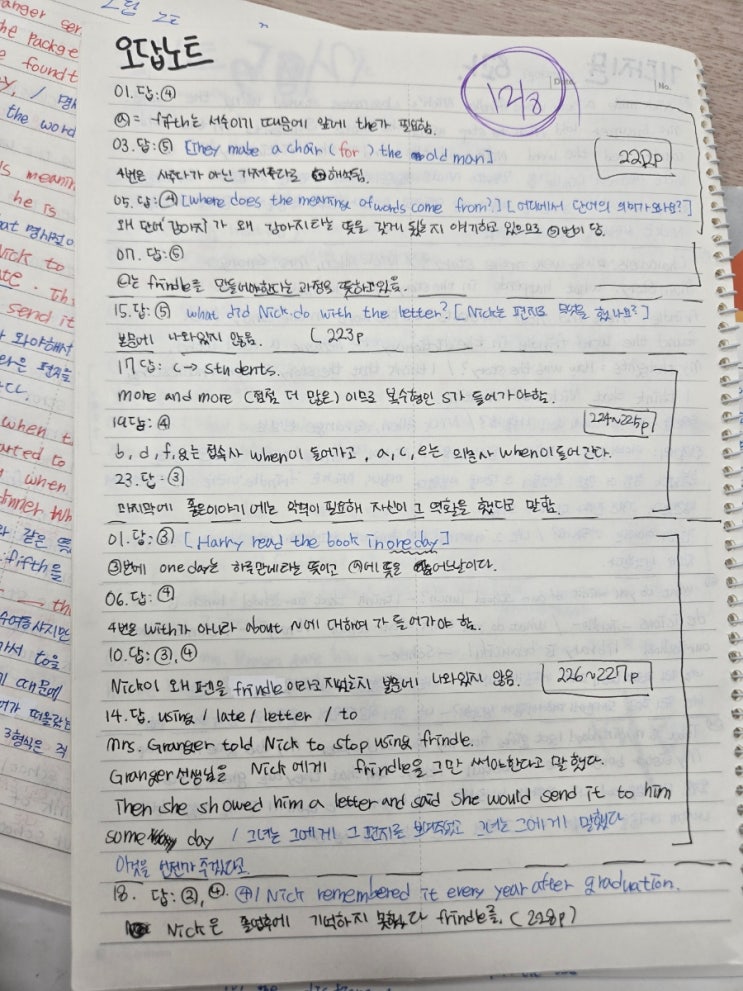 오답노트
12/8
No.
01. 답: ④
④ = fifth는 서수이기 때문에 앞에 the가 필요함.
03. 답: ⑤ [They make a chair (for) the old man]
222p
4번은 해석됨.
05. 답: ④ [where does the meaning of words come from?] [어디에서 단어의 의미가 와나요?]
왜 단어 '강아지'가 왜 강아지라는 뜻을 갖게 됐는지 얘기하고 있으므로 번이 답.
07. 답: ⑤
는 frindle을 만들어야한다는 과정을 뜻하고있음.
15. 답: ⑤ what did Nick do with the letter? [Nick는 편지로 무엇을 했나요?]
본문에 나와있지 않음. (223p
17답: C → students.
more and more (점점 더 많은) 이므로 복수형인 s가 들어가야함.
19답: ④
224~225p
b, d, f, g는 접속사 when이 들어가고, a, c, e는 의문사 when이 들어간다.
23. 답: ③
마지막에 좋은이야기에는 악역이 필요해 자신이 그 역할을 했다고 말함.
01. 답: ③ [Harry read the book in one day]
③번에 one day는 하루만에라는 뜻이고 에 뜻은 어느날이다.
06. 답: ④
4번은 with가 아니라 about N에 대하여 가 들어가야 함.
10. 답: ③, ④
Nick이 왜 펜을 frindle이라고 지었는지 본문에 나와있지 않음.
226~227p
14. 답. using / late / letter / to
Mrs. Granger told Nick to stop using frindle.
Granger 선생님을 Nick에게 frindle을 그만 써야한다고 말했다.
Then she showed him a letter and said she would send it to him
some day / 그녀는 그에게 그 편지를 보여주었고 그녀는 그에게 말했다
이것을 언젠가 주겠다고.
18. 답: ②, ④. ④/ Nick remembered it every year after graduation.
Nick은 졸업후에 기억하지 못했다 frindle를. (228p)